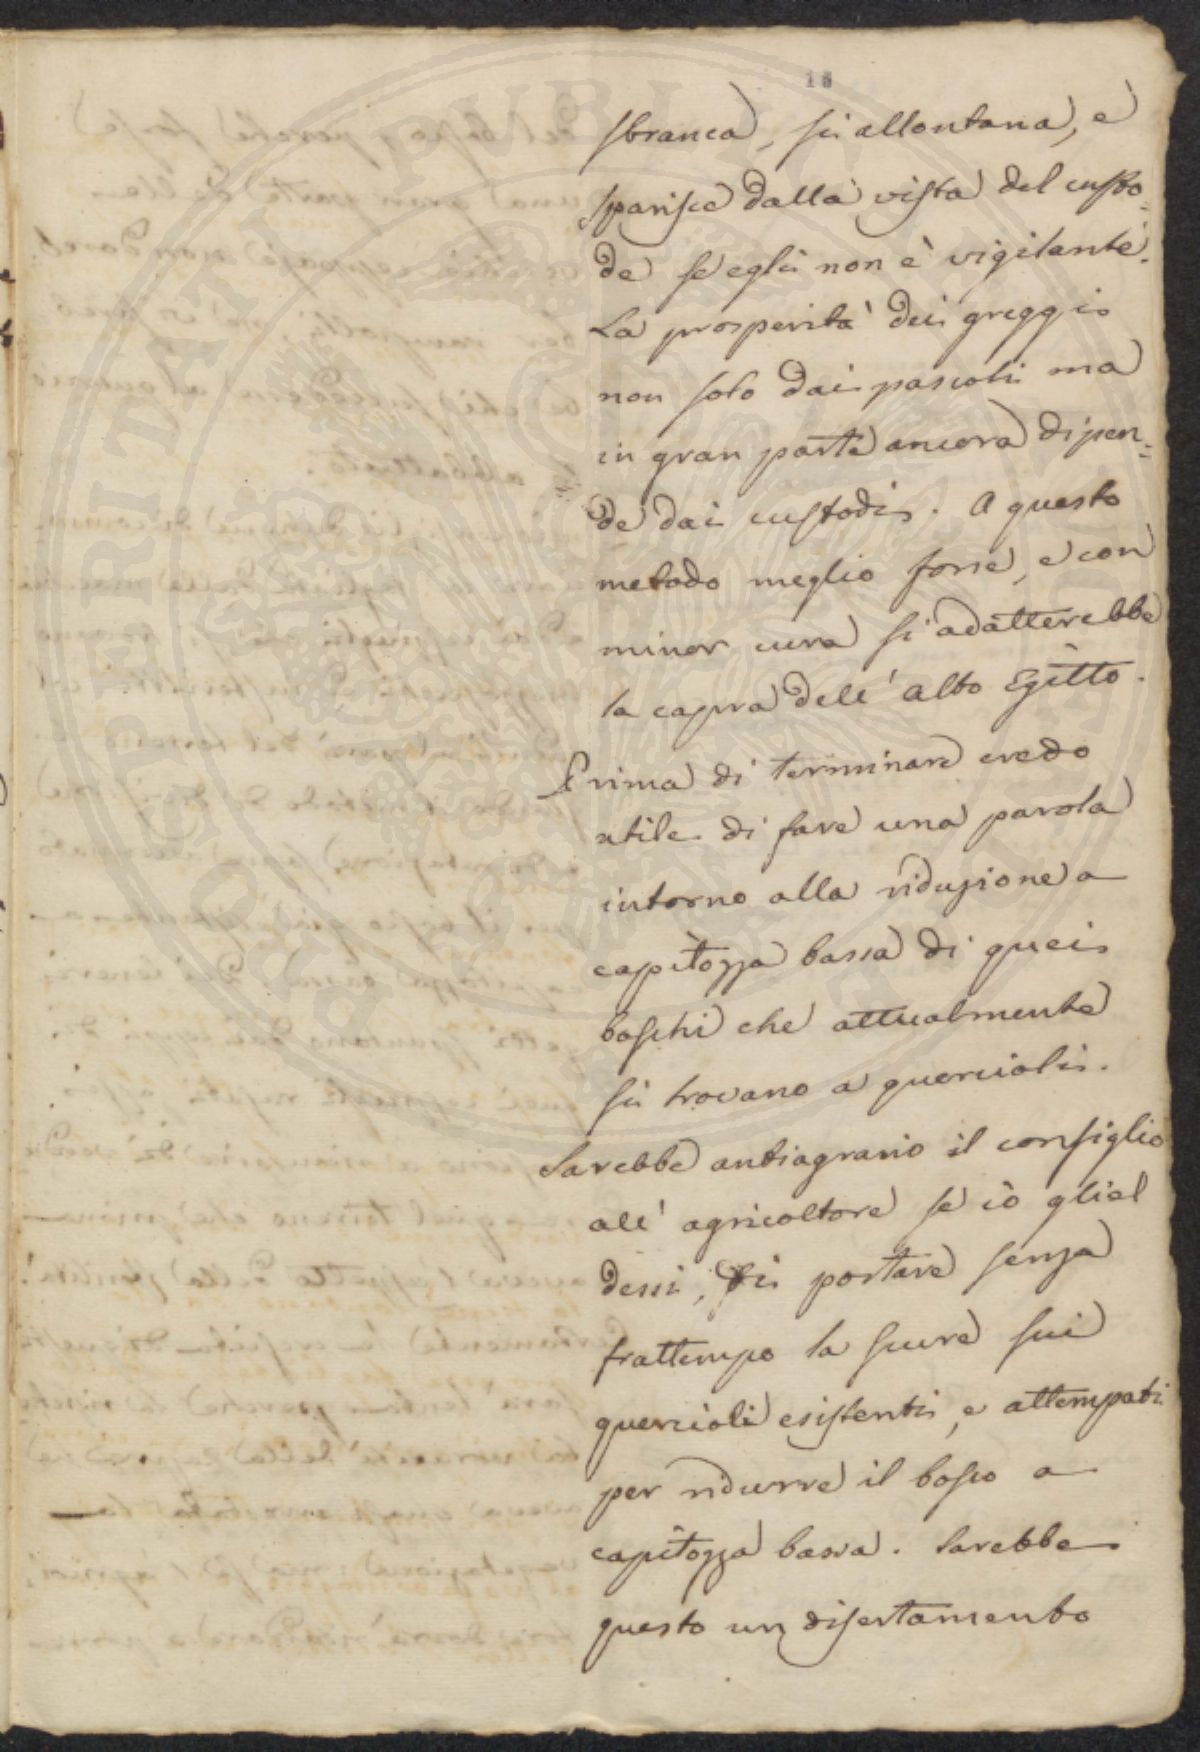 18
sbranca, si allontana, e
sparisce dalla vista del custo=
de se egli non è vigilante.
La prosperità dei greggi
non solo dai pascoli ma
in gran parte ancora dipen=
de dai custodi. A questo
metodo meglio forse, e con
minor cura si adatterebbe
la capra dell' alto Egitto.
Prima di terminare credo
utile di fare una parola
intorno alla riduzione a
capitozza bassa di quei
boschi che attualmente
si trovano a quercioli.
Sarebbe antiagrario il consiglio
all' agricoltore se io gliel
dessi, di portare senza
frattempo la scure sui
quercioli esistenti, e attempati
per ridurre il bosco a
capitozza bassa. Sarebbe
questo un disertamento
PROSPERITATI PUBLICAE